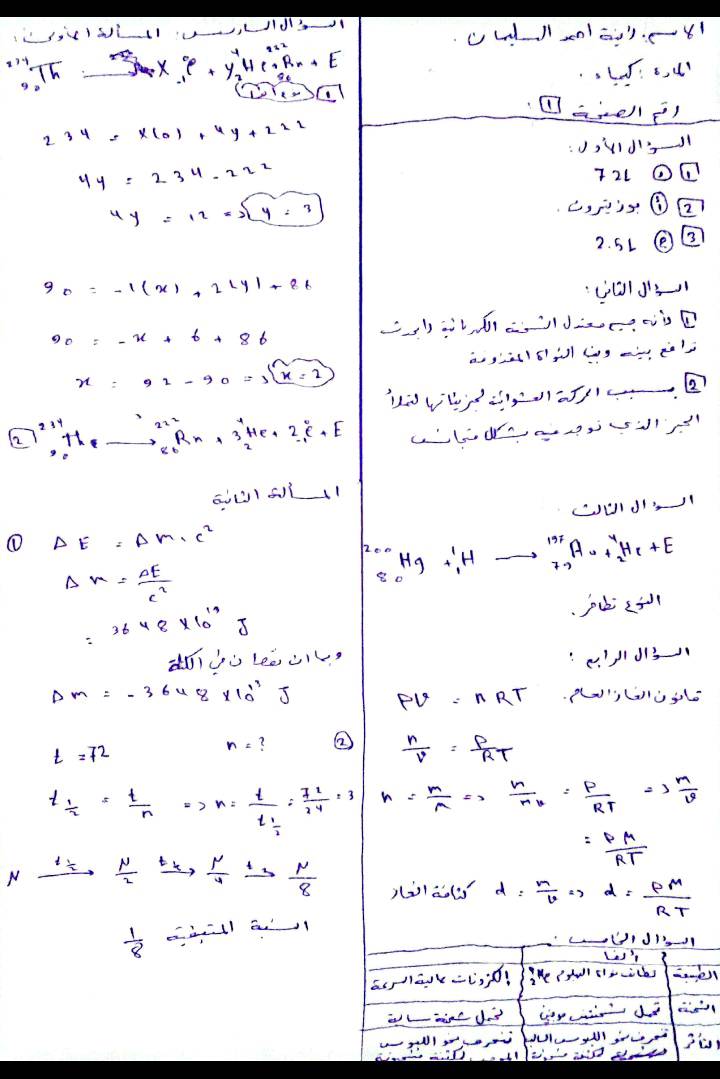 الاسم: راية احمد السليمان.
المادة: كيمياء.
رقم الصفحة [1]:
السؤال الأول:
[1] 72L
[2] (أ) بوزيترون.
[3] 2.5L
السؤال الثاني:
[1] لأنه جسيم معتدل الشحنة الكهربائية ولا يحدث
تدافع بينه وبين النواة المقذوفة
[2] بسبب الحركة العشوائية لجزيئاتها لتملأ
الحيز الذي توجد فيه بشكل متجانس
السؤال الثالث:
²⁰⁰₈₀Hg + ¹₁H ⟶ ¹⁹⁷₇₉Au + ⁴₂He + E
النوع تطافر.
السؤال الرابع:
قانون الغاز العام. PV = nRT
n/V = P/RT
n = m/M => m/MV = P/RT => m/V
= PM/RT
كثافة الغاز d = m/V => d = PM/RT
السؤال الخامس:
ألفا
الطبيعة | تطابق نواة الهيليوم ⁴₂He | إلكترونات عالية السرعة
الشحنة | تحمل شحنتين موجبتين | تحمل شحنة سالبة
التأثر | تنحرف نحو اللبوس السالب | تنحرف نحو اللبوس
السؤال السادس: المسألة الأولى:
²³⁴₉₀Th ⟶ X ⁰₋₁e + y ⁴₂He + ²²²₈₆Rn + E
[1]
234 = X(0) + 4y + 222
4y = 234 - 222
4y = 12 => y = 3
90 = -1(x) + 2(y) + 86
90 = -x + 6 + 86
x = 92 - 90 => x = 2
[2] ²³⁴₉₀Th ⟶ ²²²₈₆Rn + 3 ⁴₂He + 2 ⁰₋₁e + E
المسألة الثانية
① ΔE = Δm.c²
Δm = ΔE/c²
= 3648 x 10¹³ J
وبما ان نقصان في الكتلة
Δm = -3648 x 10¹³ J
② n = ? t = 72
t½ = t/n => n = t/t½ = 72/24 = 3
N ⟶(t½) N/2 ⟶(t½) N/4 ⟶(t½) N/8
النسبة المتبقية 1/8